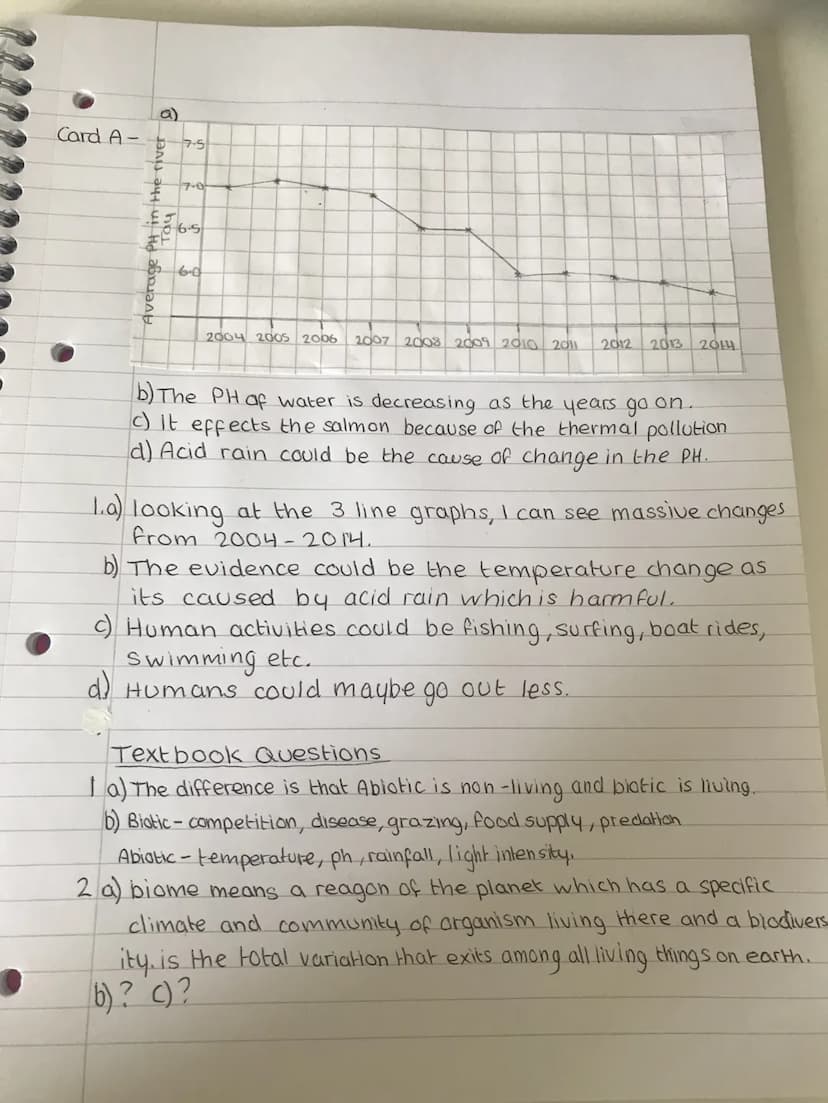 a)
Card A -
Average PH in the river
Tay
7.5
7.0
6.5
6.0
2004 2005 2006 2007 2008 2009 2010 2011 2012 2013 2014
b) The PH of water is decreasing as the years go on.
c) It effects the salmon because of the thermal pollution
d) Acid rain could be the cause of change in the PH.
1.a) looking at the 3 line graphs, I can see massive changes
from 2004 - 2014.
b) The evidence could be the temperature change as
its caused by acid rain which is harmful.
c) Human activities could be fishing, surfing, boat rides,
swimming etc.
d) Humans could maybe go out less.
Textbook Questions
1 a) The difference is that Abiotic is non-living and biotic is living.
b) Biotic - competition, disease, grazing, food supply, predation
Abiotic - temperature, ph, rainfall, light intensity.
2 a) biome means a reagon of the planet which has a specific
climate and community of organism living there and a biodivers
ity. is the total variation that exits among all living things on earth.
b) ? c) ?